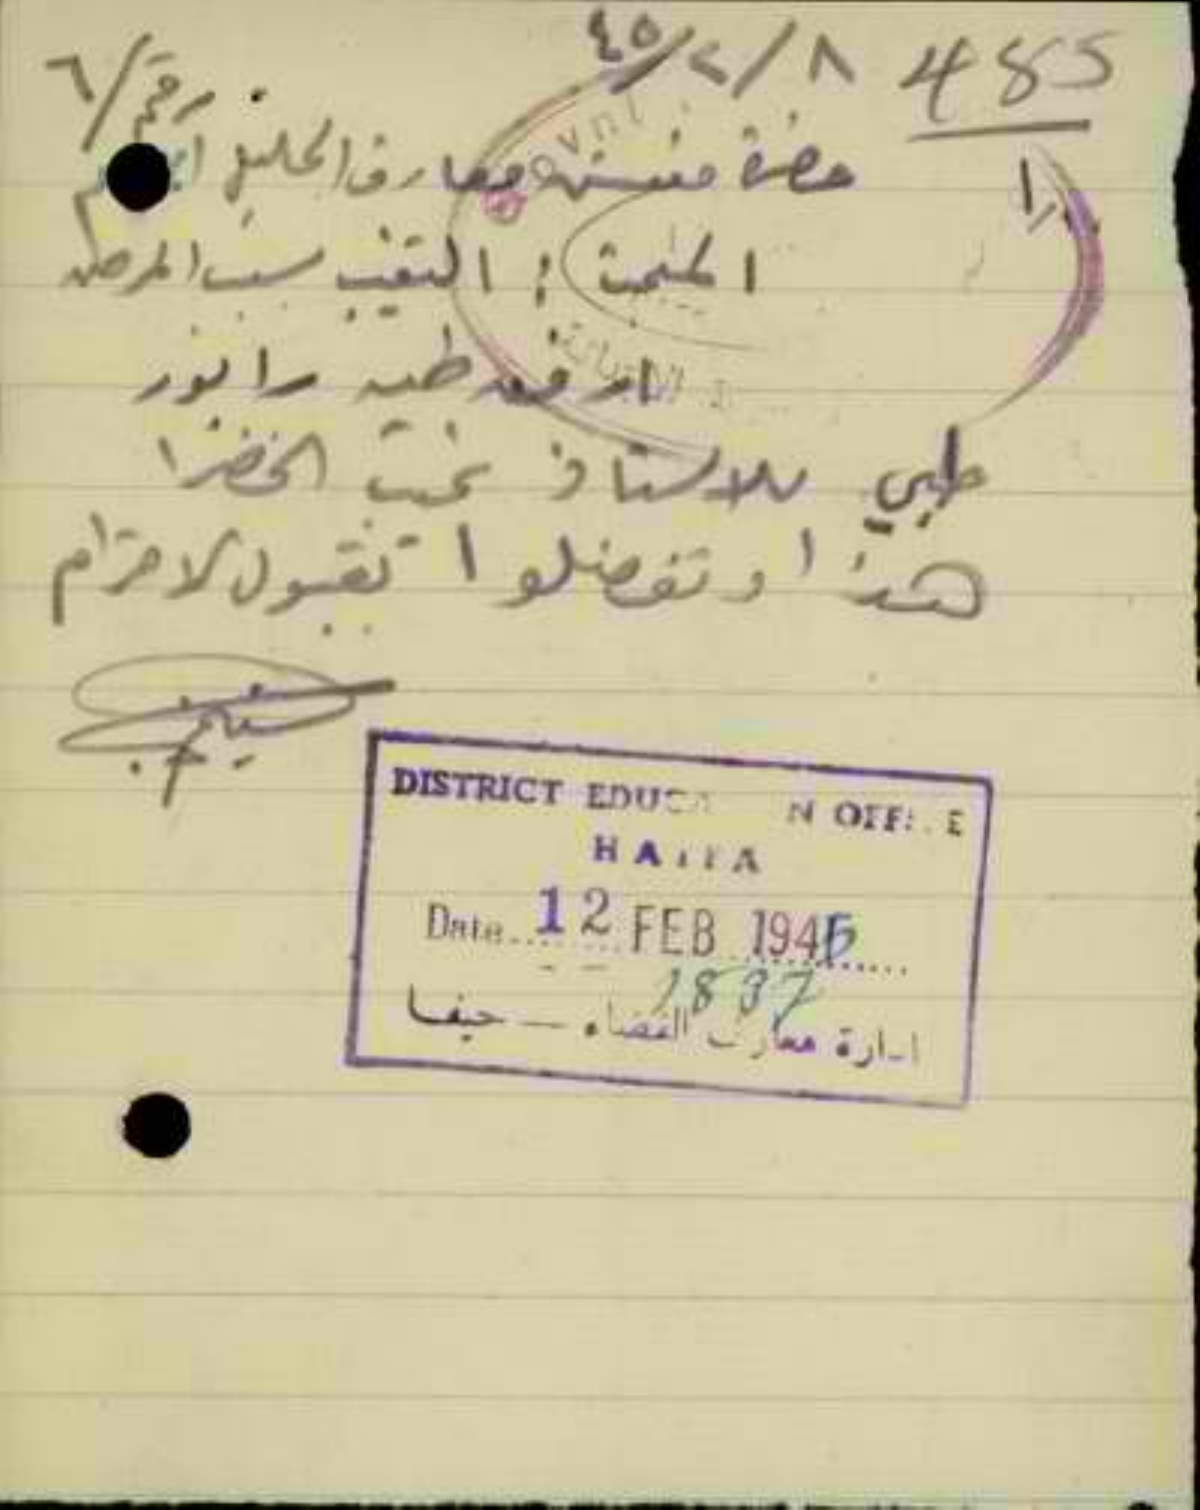 485
٤٥/٢/٨
رقم/٦
حضرة مفتش معارف الجليل
الموضوع : التغيب بسبب المرض
ارفق طيه رابور
طبي للاستاذ نجيب الخضرا
هذا وتفضلوا بقبول الاحترام
DISTRICT EDUCATION OFFICE
HAIFA
Date 12 FEB 1945
1837
ادارة معارف القضاء — حيفا